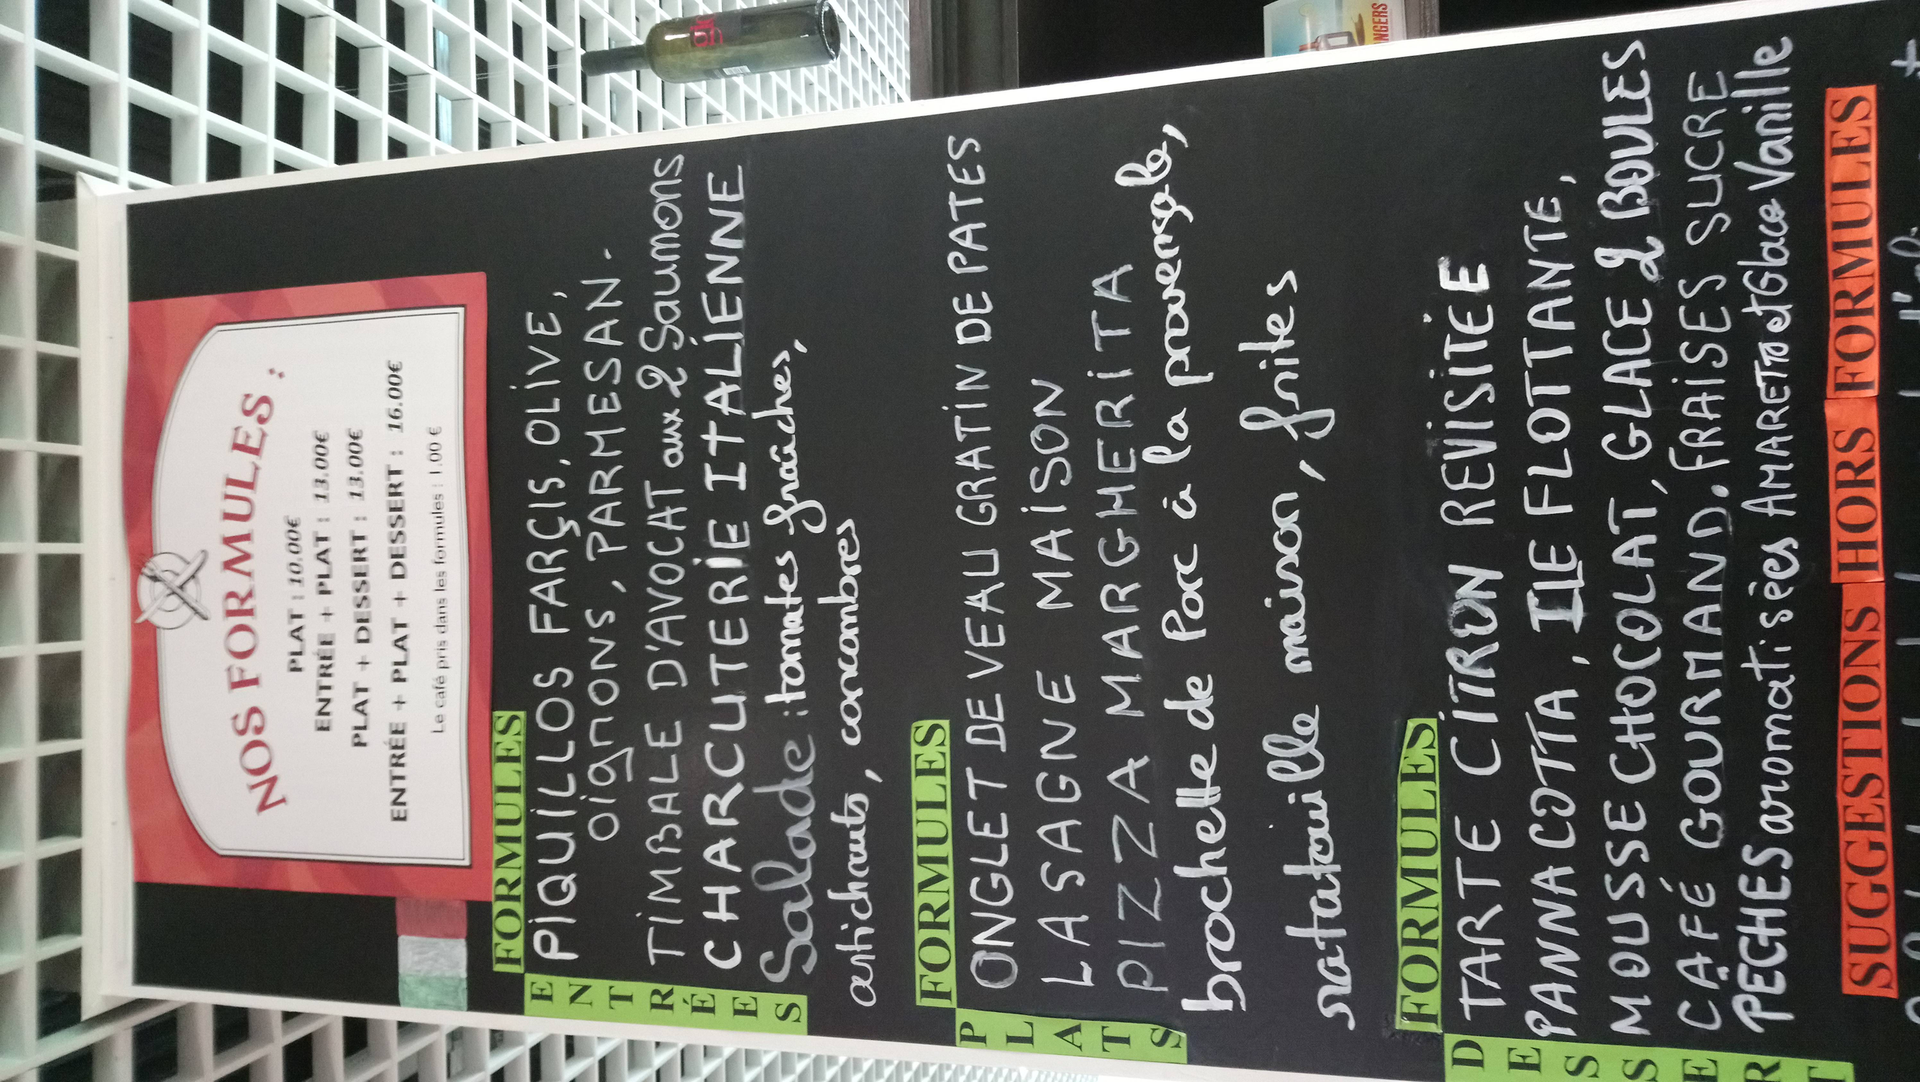 NOS FORMULES :
PLAT : 10.00€
ENTRÉE + PLAT : 13.00€
PLAT + DESSERT : 13.00€
ENTRÉE + PLAT + DESSERT : 16.00€
Le café pris dans les formules : 1.00 €
FORMULES
ENTRÉES
PIQUILLOS FARÇIS, OLIVE,
OIGNONS, PARMESAN.
TIMBALE D'AVOCAT aux 2 Saumons
CHARCUTERIE ITALIENNE
Salade : tomates fraîches,
artichauts, concombres
FORMULES
PLATS
ONGLET DE VEAU GRATIN DE PATES
LASAGNE MAISON
PIZZA MARGHERITA
brochette de Porc à la provençale,
ratatouille maison, frites
FORMULES
DESSERT
TARTE CITRON REVISITÉE
PANNACOTTA, ILE FLOTTANTE,
MOUSSE CHOCOLAT, GLACE 2 BOULES
CAFÉ GOURMAND. FRAISES SUCRE
PECHES aromatisées AMARETTO et Glace Vanille
SUGGESTIONS HORS FORMULES
NGERS